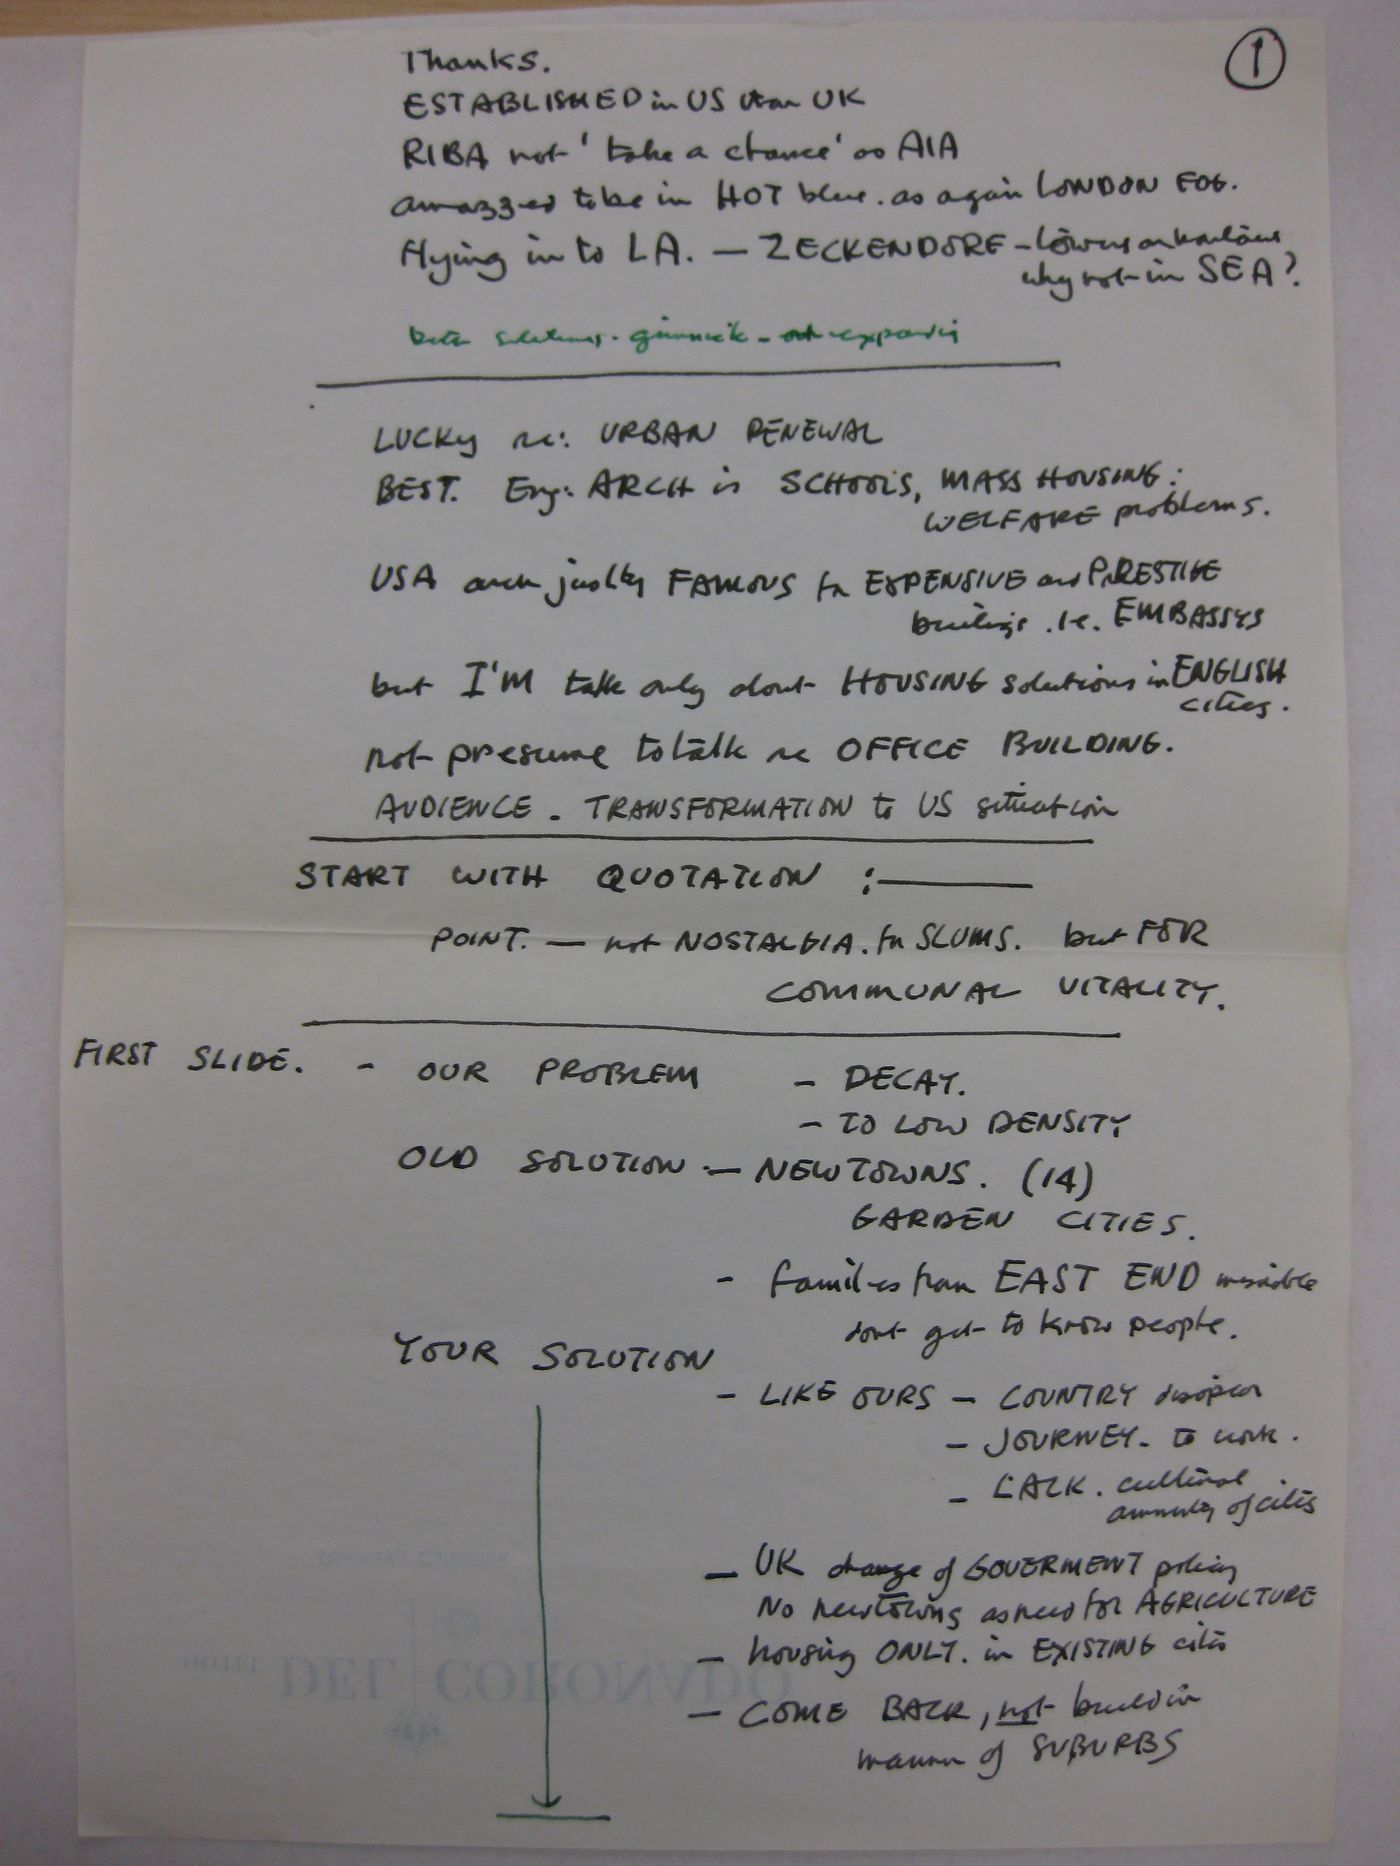 ①
Thanks.
ESTABLISHED in US than UK
RIBA not 'take a chance' as AIA
amazzed to be in HOT blue. as again LONDON FOG.
flying in to LA. — ZECKENDORF -
why not in SEA?
solutions. gimmick -
LUCKY re: URBAN RENEWAL
BEST. Eng: ARCH is SCHOOLS, MASS HOUSING:
WELFARE problems.
USA arch justly FAMOUS for EXPENSIVE and PRESTIGE
buildings. i.e. EMBASSYS
but I'M talk only about HOUSING solutions in ENGLISH
cities.
not presume to talk re OFFICE BUILDING.
AUDIENCE - TRANSFORMATION to US situation
START WITH QUOTATION :——
POINT. — not NOSTALGIA. for SLUMS. but FOR
COMMUNAL VITALITY.
FIRST SLIDE. - OUR PROBLEM - DECAY.
- TO LOW DENSITY
OLD SOLUTION — NEWTOWNS. (14)
GARDEN CITIES.
- families from EAST END miserable
dont get to know people.
YOUR SOLUTION
- LIKE OURS - COUNTRY disapear
- JOURNEY - to work.
- LACK. cultural
amenity of cities
— UK change of GOVERMENT policy
No newtowns as need for AGRICULTURE
- housing ONLY. in EXISTING cities
- COME BACK, not build in
manner of SUBURBS
HOTEL DEL CORONADO